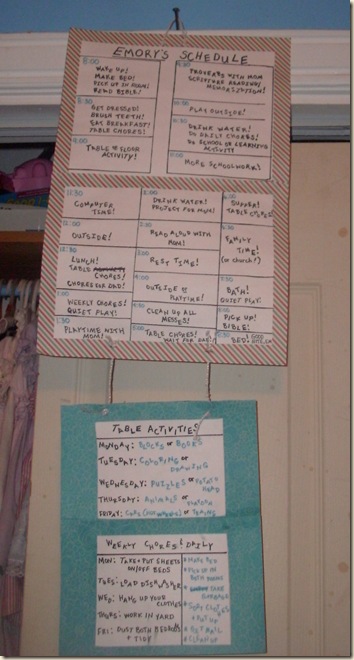 EMORY'S SCHEDULE
8:00
WAKE UP!
MAKE BED!
PICK UP IN ROOM!
READ BIBLE!
8:30
GET DRESSED!
BRUSH TEETH!
EAT BREAKFAST!
TABLE CHORES!
9:00
TABLE or FLOOR
ACTIVITY!
9:30
PROVERBS WITH MOM
SCRIPTURE READING/
MEMORIZATION!
PLAY OUTSIDE!
DRINK WATER!
DO DAILY CHORES!
DO SCHOOL OR LEARNING
ACTIVITY
MORE SCHOOLWORK!
11:30
COMPUTER
TIME!
12:00
OUTSIDE!
12:30
LUNCH!
TABLE
CHORES!
CHORES FOR DAD!
1:00
WEEKLY CHORES!
QUIET PLAY!
1:30
PLAYTIME WITH
MOM!
2:00
DRINK WATER!
PROJECT FOR MOM!
READ ALOUD WITH
MOM!
3:00
REST TIME!
4:00
OUTSIDE or
PLAYTIME!
CLEAN UP ALL
MESSES!
TABLE CHORES!
WAIT FOR DAD!
SUPPER!
TABLE CHORES!
FAMILY
TIME!
(or church!)
BATH!
QUIET PLAY!
PICK UP!
BIBLE!
BED
TABLE ACTIVITIES
MONDAY: BLOCKS or BOOKS
TUESDAY: COLORING or
DRAWING
WEDNESDAY: PUZZLES or POTATO
HEAD
THURSDAY: ANIMALS or
FRIDAY: CARS or TRAINS
WEEKLY CHORES & DAILY
MON: TAKE + PUT SHEETS
ON/OFF BEDS
TUES: LOAD DISHWASHER
WED: HANG UP YOUR
CLOTHES
THURS: WORK IN YARD
FRI: DUST BOTH BEDROOMS
+ TIDY
MAKE BED
PICK UP IN
BOTH ROOMS
SORT CLOTHES
+ PUT UP
GET MAIL
CLEAN UP